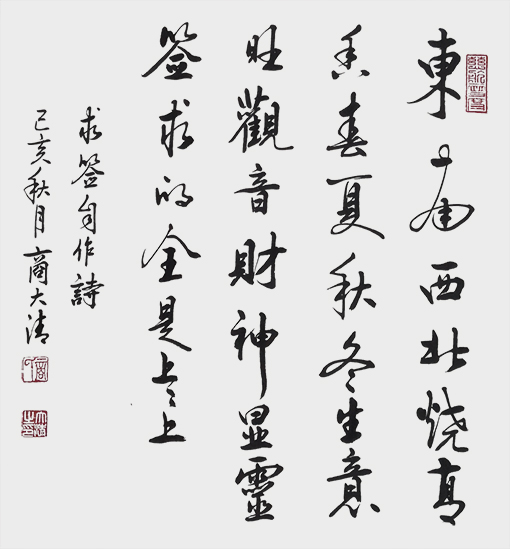 東南西北烧高
香春夏秋冬生意
旺觀音財神显靈
签求的全是上上
求签自作詩
己亥秋月商大清